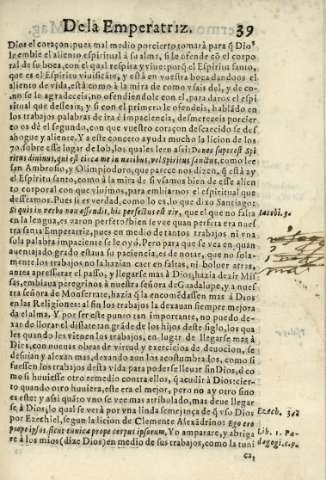 De la Emperatriz. 39
Dios el coraçon: pues mal medio por cierto tomarà para q̃ Dios
le embie el aliento espiritual a su alma, si le ofende cõ el corpo
ral de su boca, con el qual respira y viue: porq̃ el Espiritu santo,
que es el Espiritu viuificãte, y està en vuestra boca dandoos el
aliento de vida, està como à la mira de como vsais del, y de co-
mo se le agradeceis, no ofendiendole con el, para daros el espi
ritual que desseais, y si con el primero le ofendeis, hablãdo en
los trabajos palabras de ira ê impaciencia, desmereceis porcier
to os dè el segundo, con que vuestro coraçon descaecido se des
ahogue y aliente. Y a este concepto ayuda mucho la licion de los
70. sobre este lugar de Iob, los quales leen assi: Donec superest Spi
ritus diuinus, qui est circa me in naribus, vel Spiritus sanctus, como lee
san Ambrosio, y Olimpiodoro, que parece nos dizen, q̃ està ay
el Espiritu santo, como à la mira de si vsamos bien de esse alien
to corporal con que viuimos, para embiarnos el espiritual que
desseamos. Pues si es verdad, como lo es, lo que dixo Santiago:
Si quis in verbo non offendit, hic perfectus est vir, que el que no falta
en la lengua, es varon perfeto bien se vee quan perfeta era nues
tra santa Emperatriz, pues en medio de tantos trabajos ni vna
sola palabra impaciente se le oyò. Pero para que se vea en quan
auentejado grado estaua su paciencia, es de notar, que no sola-
mente los trabajos no la hazian caer en faltas, ni boluer atras,
antes apressurar el passo, y llegarse mas à Dios, hazia dezir Mis
sas, embiaua peregrinos à nuestra señora de Guadalupe, y a nues
tra señora de Monserrate, hazia q̃ la encomẽdassen mas à Dios
en las Religiones: al fin los trabajos la dexauan siempre mejora
da el alma. Y por ser este punto tan importante, no puedo de-
xar de llorar el dislate tan grãde de los hijos deste siglo, los qua
les quando les vienen los trabajos, en lugar de llegarse mas à
Dios, con nueuas obras de virtud y exercicios de deuocion, se
desuian y alexan mas, dexando aun los acostumbrados, como si
fuessen los trabajos desta vida para poderse lleuar sin Dios, ò co
mo si huuiesse otro remedio contra ellos, q̃ acudir à Dios: cier-
to quando otro huuiera, este era el mejor, pero no ay otro sino
es este: y assi quãto vno se vee mas atribulado, mas deue llegar
se à Dios, lo qual se verà por vna linda semejança de q̃ vso Dios
por Ezechiel, segun la licion de Clemente Alexãdrino: Ego ero
prope ipsos, sicut tunica prope corpus ipsorum, Yo ampararè, y abriga
rè à los mios (dize Dios) en medio de sus trabajos, como la tuni
Iacobi. 3.
Ezech. 34.
Lib. 1. Pæ-
dagogi. c. 9.